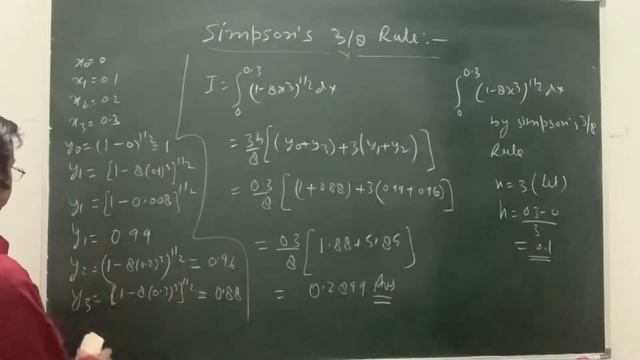 Simpson's 3/8 Rule:-
x₀=0
x₁=0.1
x₂=0.2
x₃=0.3
y₀=(1-0)^1/2=1
y₁=[1-8(0.1)³]^1/2
y₁=[1-0.008]^1/2
y₁= 0.99
y₂=(1-8(0.2)³)^1/2=0.96
y₃=[1-8(0.3)³]^1/2=0.88
I=∫₀^0.3 (1-8x³)^1/2 dx
=3h/8[(y₀+y₃)+3(y₁+y₂)]
=0.3/8[(1+0.88)+3(0.99+0.96)]
=0.3/8[1.88+5.85]
= 0.2899 Ans
∫₀^0.3 (1-8x³)^1/2 dx
by simpson's 3/8
Rule
n=3 (let)
h=0.3-0/3
=0.1